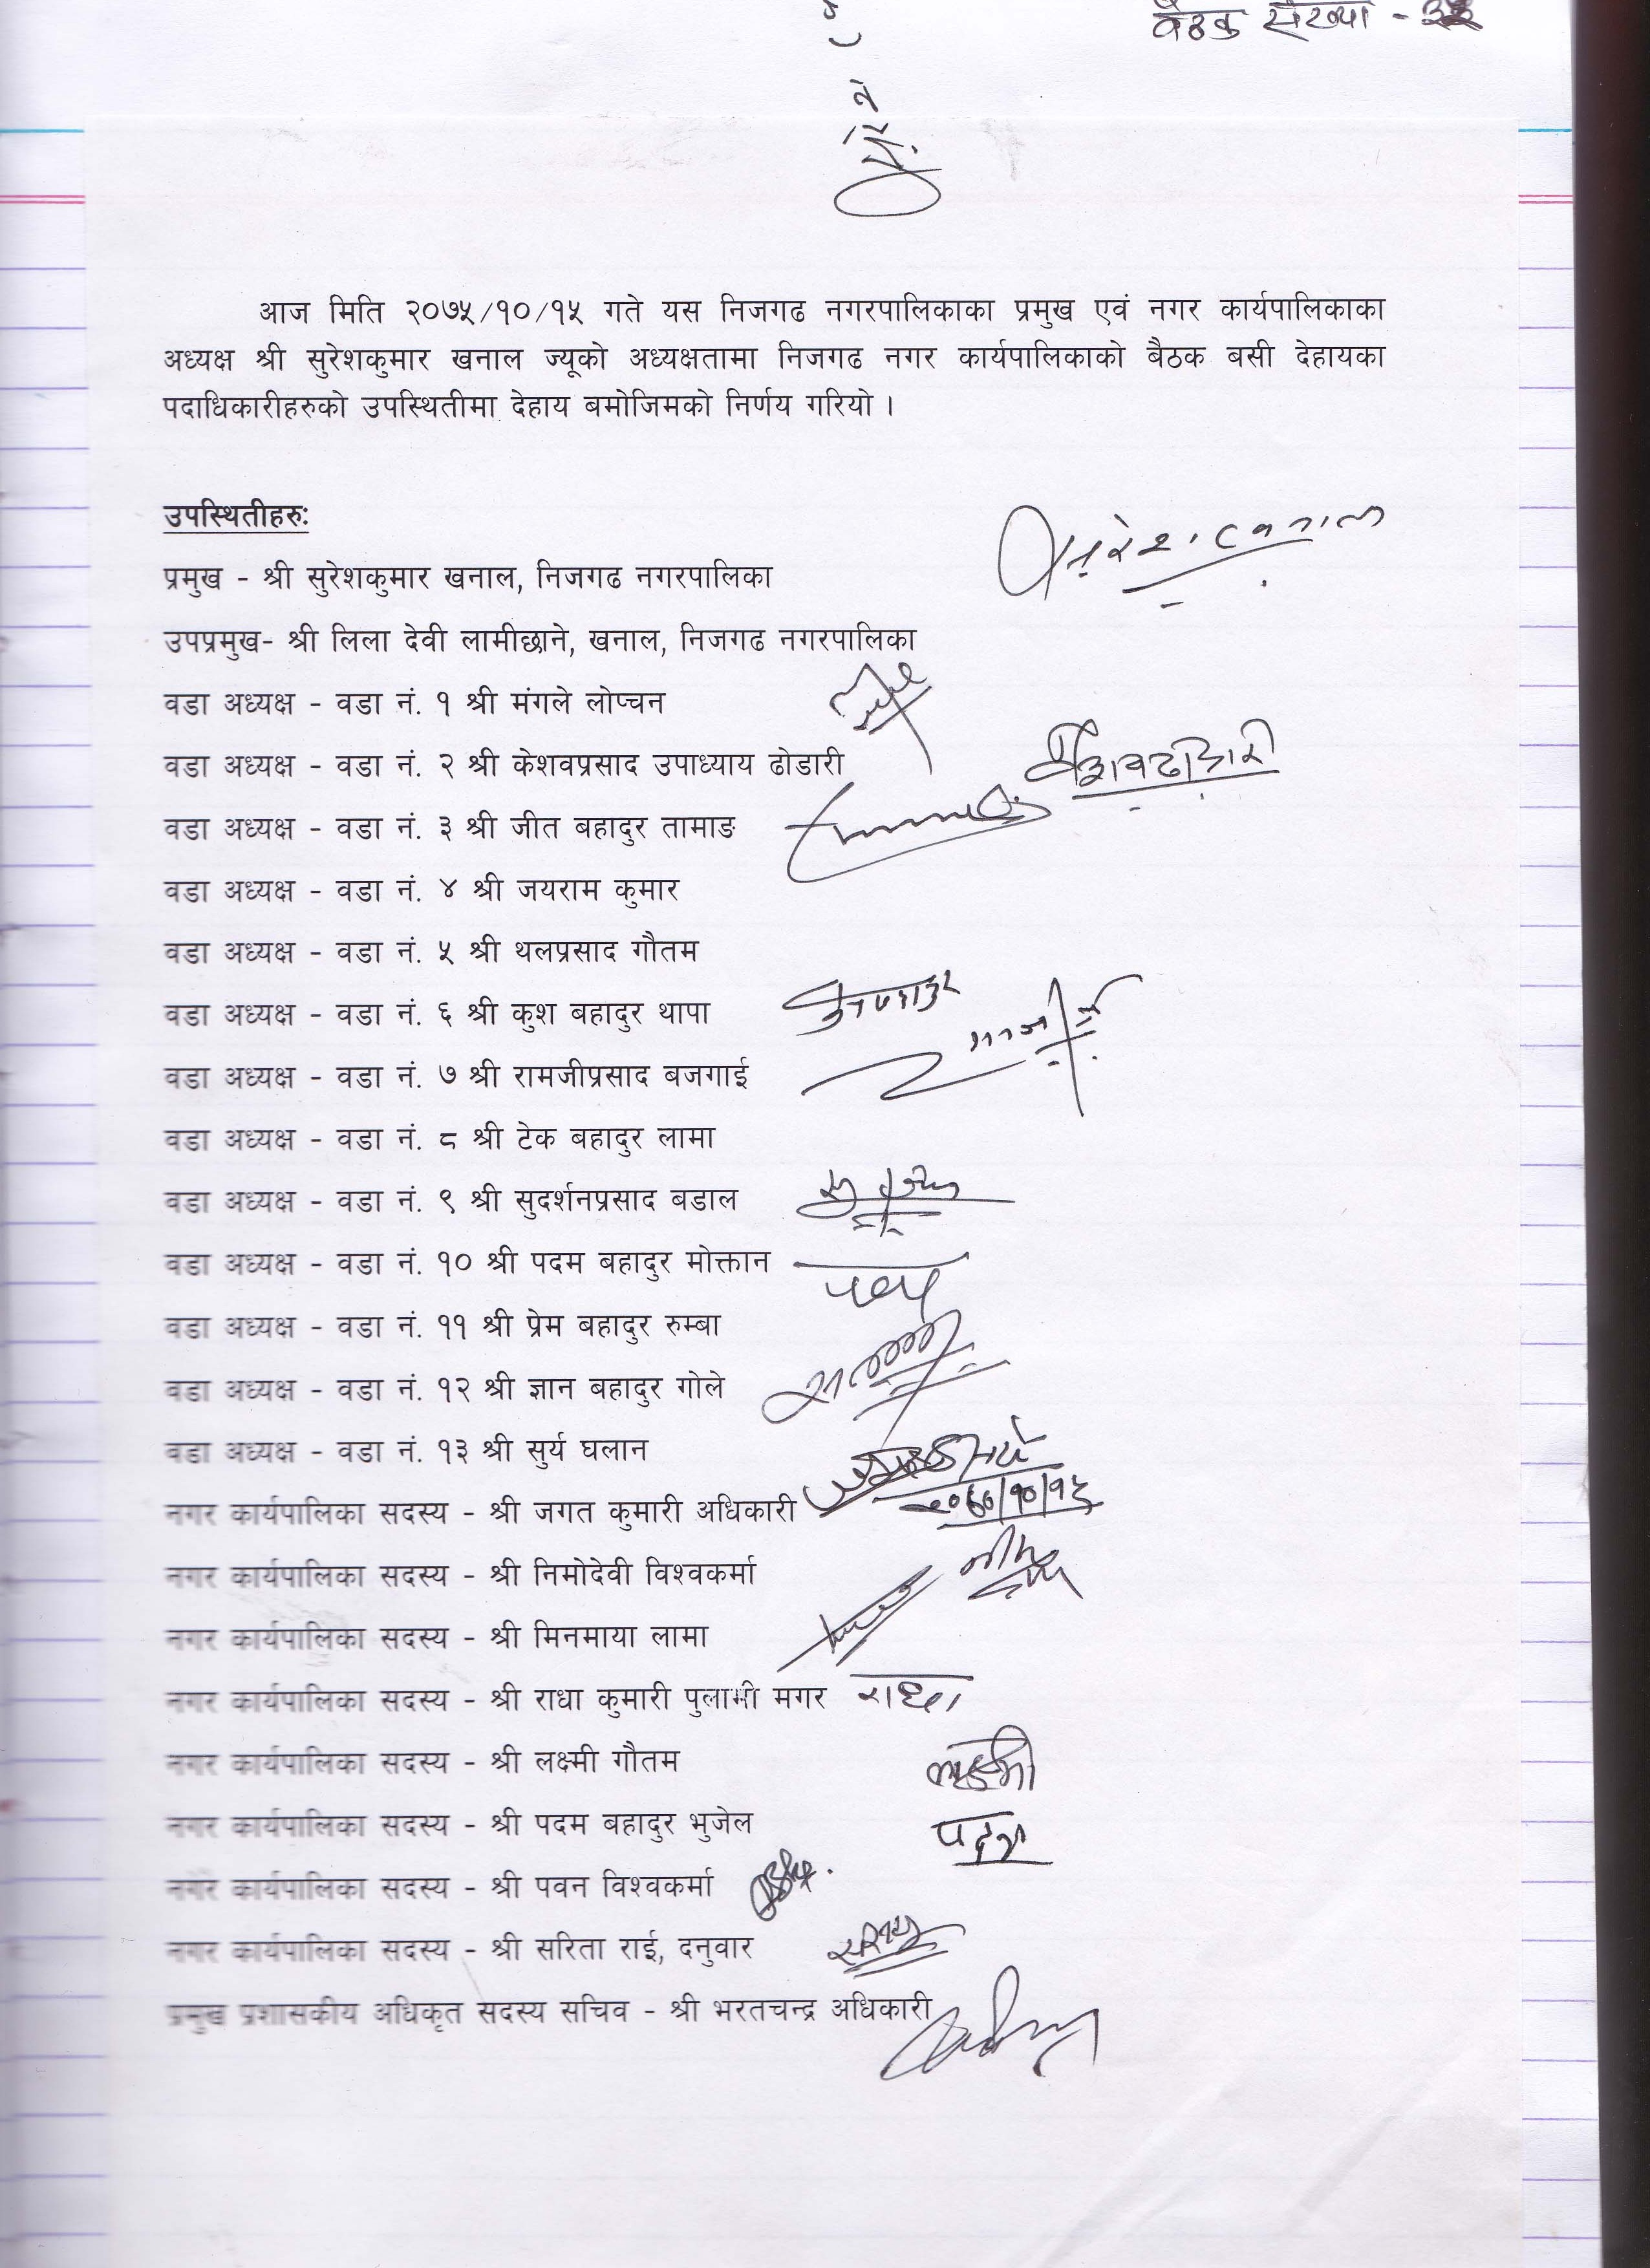 बैठक संख्या -
आज मिति २०७५/१०/१५ गते यस निजगढ नगरपालिकाका प्रमुख एवं नगर कार्यपालिकाका
अध्यक्ष श्री सुरेशकुमार खनाल ज्यूको अध्यक्षतामा निजगढ नगर कार्यपालिकाको बैठक बसी देहायका
पदाधिकारीहरुको उपस्थितीमा देहाय बमोजिमको निर्णय गरियो ।
उपस्थितीहरुः
प्रमुख - श्री सुरेशकुमार खनाल, निजगढ नगरपालिका
उपप्रमुख- श्री लिला देवी लामीछाने, खनाल, निजगढ नगरपालिका
वडा अध्यक्ष - वडा नं. १ श्री मंगले लोप्चन
वडा अध्यक्ष - वडा नं. २ श्री केशवप्रसाद उपाध्याय ढोडारी
वडा अध्यक्ष - वडा नं. ३ श्री जीत बहादुर तामाङ
वडा अध्यक्ष - वडा नं. ४ श्री जयराम कुमार
वडा अध्यक्ष - वडा नं. ५ श्री थलप्रसाद गौतम
वडा अध्यक्ष - वडा नं. ६ श्री कुश बहादुर थापा
वडा अध्यक्ष - वडा नं. ७ श्री रामजीप्रसाद बजगाई
वडा अध्यक्ष - वडा नं. ८ श्री टेक बहादुर लामा
वडा अध्यक्ष - वडा नं. ९ श्री सुदर्शनप्रसाद बडाल
वडा अध्यक्ष - वडा नं. १० श्री पदम बहादुर मोक्तान
वडा अध्यक्ष - वडा नं. ११ श्री प्रेम बहादुर रुम्बा
वडा अध्यक्ष - वडा नं. १२ श्री ज्ञान बहादुर गोले
वडा अध्यक्ष - वडा नं. १३ श्री सुर्य घलान
नगर कार्यपालिका सदस्य - श्री जगत कुमारी अधिकारी
नगर कार्यपालिका सदस्य - श्री निमोदेवी विश्वकर्मा
नगर कार्यपालिका सदस्य - श्री मिनमाया लामा
नगर कार्यपालिका सदस्य - श्री राधा कुमारी पुलामी मगर राधा
नगर कार्यपालिका सदस्य - श्री लक्ष्मी गौतम लक्ष्मी
नगर कार्यपालिका सदस्य - श्री पदम बहादुर भुजेल पदम
नगर कार्यपालिका सदस्य - श्री पवन विश्वकर्मा
नगर कार्यपालिका सदस्य - श्री सरिता राई, दनुवार
प्रमुख प्रशासकीय अधिकृत सदस्य सचिव - श्री भरतचन्द्र अधिकारी